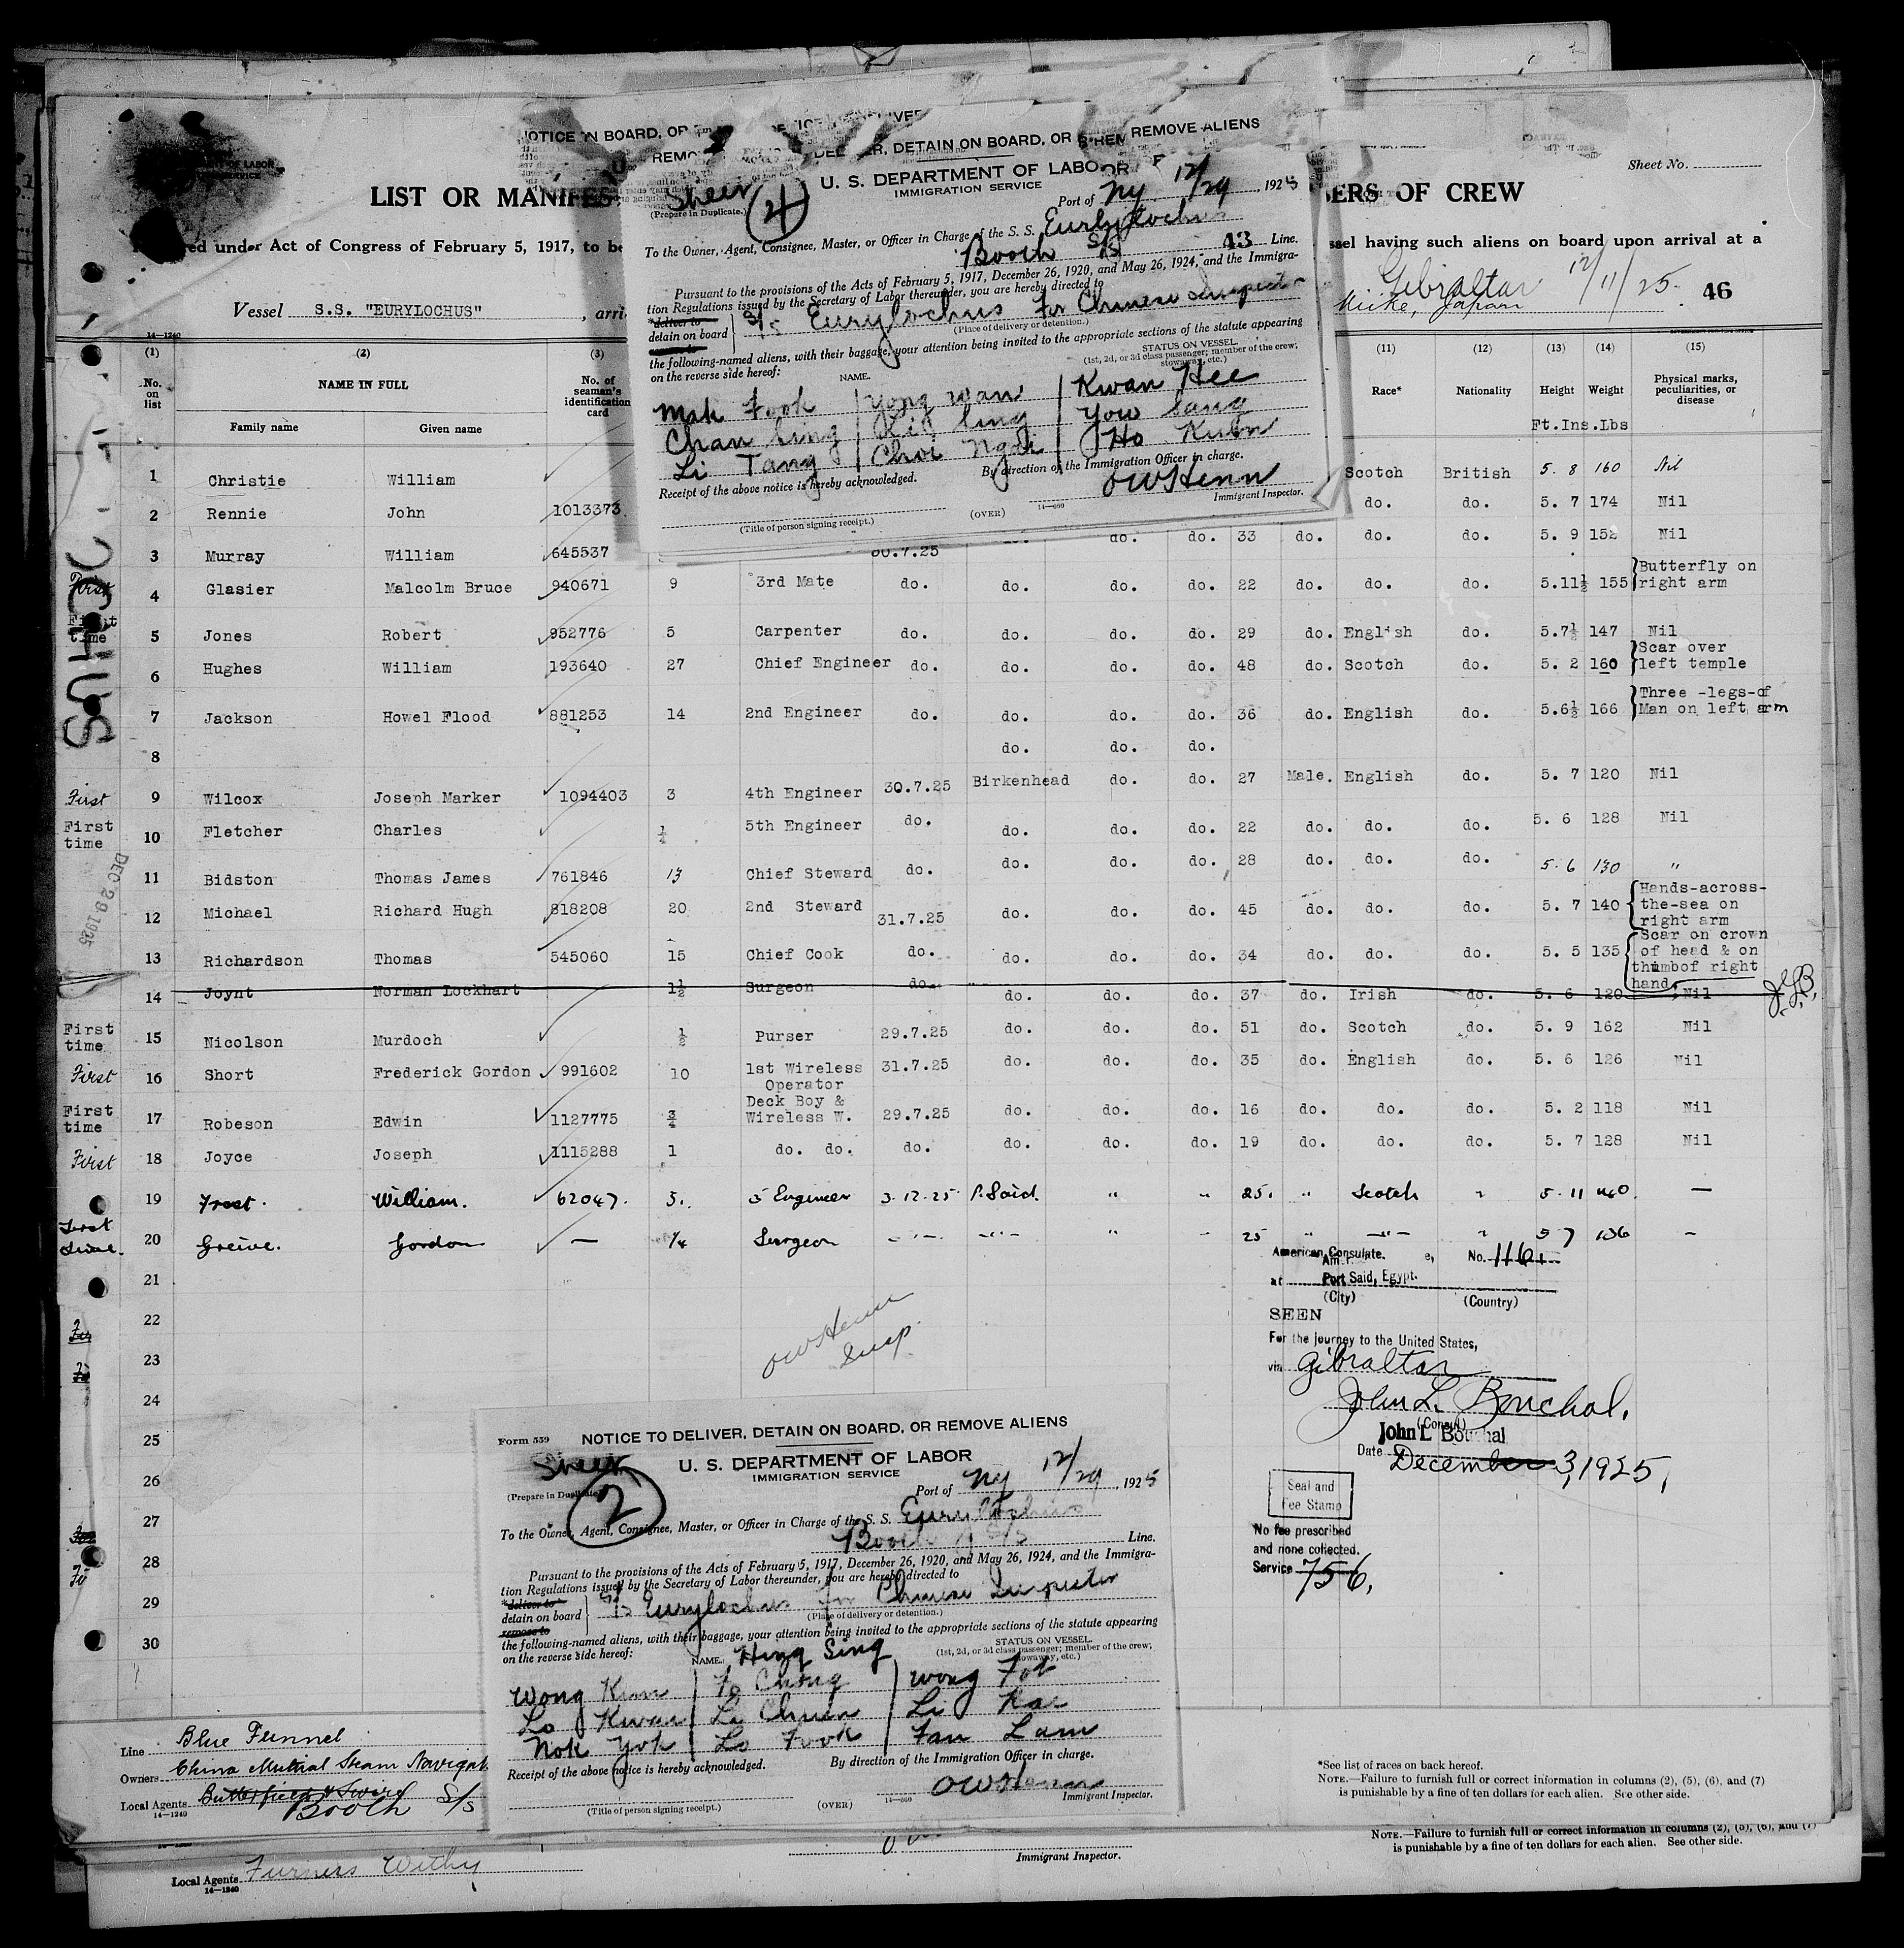 NOTICE
REMOVE ALIENS
DETAIN ON BOARD, OR
Sheet No.
LIST OR MANIFES
ERS OF CREW
U. S. DEPARTMENT OF LABOR
IMMIGRATION SERVICE
(Prepare in Duplicate.)
4
Port of NY 12/29, 1925
ed under Act of Congress of February 5, 1917, to be
ssel having such aliens on board upon arrival at a
To the Owner, Agent, Consignee, Master, or Officer in Charge of the S. S. Eurylochus
Booth S/S 43 Line.
Pursuant to the provisions of the Acts of February 5, 1917, December 26, 1920, and May 26, 1924, and the Immigra-
tion Regulations issued by the Secretary of Labor thereunder, you are hereby directed to
*deliver to
detain on board
S/S Eurylochus for Chinese Inspector
(Place of delivery or detention.)
the following-named aliens, with their baggage, your attention being invited to the appropriate sections of the statute appearing
on the reverse side hereof:
STATUS ON VESSEL
(1st, 2d, or 3d class passenger; member of the crew;
stowaway, etc.)
NAME.
Mak Fook Yong Wan Kwan Hee
Chan Sing Li Sing Yow Sang
Li Tang Choi Ngok Ho Kuan
Receipt of the above notice is hereby acknowledged.
By direction of the Immigration Officer in charge.
OWHenn
Immigrant Inspector.
(Title of person signing receipt.)
(OVER)
14-660
Vessel S.S. "EURYLOCHUS", arri
Gibraltar 12/11/25
Miike, Japan
46
14-1240
(1) (2) (3) (11) (12) (13) (14) (15)
No. on list
NAME IN FULL
Family name Given name
No. of seaman's identification card
Race* Nationality Height Weight Physical marks, peculiarities, or disease
Ft.Ins.Lbs
1 Christie William Scotch British 5. 8 160 Nil
2 Rennie John 1013373 do. do. 5. 7 174 Nil
3 Murray William 645537 30.7.25 do. do. 33 do. do. do. 5. 9 152 Nil
First 4 Glasier Malcolm Bruce 940671 9 3rd Mate do. do. do. do. 22 do. do. do. 5.11½ 155 Butterfly on right arm
First time 5 Jones Robert 952776 5 Carpenter do. do. do. do. 29 do. English do. 5.7½ 147 Nil
6 Hughes William 193640 27 Chief Engineer do. do. do. do. 48 do. Scotch do. 5. 2 160 Scar over left temple
7 Jackson Howel Flood 881253 14 2nd Engineer do. do. do. do. 36 do. English do. 5.6½ 166 Three -legs-of Man on left arm
8 do. do. do.
First 9 Wilcox Joseph Marker 1094403 3 4th Engineer 30.7.25 Birkenhead do. do. 27 Male. English do. 5. 7 120 Nil
First time 10 Fletcher Charles 5th Engineer do. do. do. do. 22 do. do. do. 5. 6 128 Nil
11 Bidston Thomas James 761846 13 Chief Steward do. do. do. do. 28 do. do. do. 5. 6 130 "
12 Michael Richard Hugh 818208 20 2nd Steward 31.7.25 do. do. do. 45 do. do. do. 5. 7 140 Hands-across-the-sea on right arm
13 Richardson Thomas 545060 15 Chief Cook do. do. do. do. 34 do. do. do. 5. 5 135 Scar on crown of head & on thumbof right hand
14 Joynt Norman Lockhart 1½ Surgeon do. do. do. do. 37 do. Irish do. 5. 6 120 Nil
First time 15 Nicolson Murdoch ½ Purser 29.7.25 do. do. do. 51 do. Scotch do. 5. 9 162 Nil
First 16 Short Frederick Gordon 991602 10 1st Wireless Operator 31.7.25 do. do. do. 35 do. English do. 5. 6 126 Nil
First time 17 Robeson Edwin 1127775 ¾ Deck Boy & Wireless W. 29.7.25 do. do. do. 16 do. do. do. 5. 2 118 Nil
First 18 Joyce Joseph 1115288 1 do. do. do. do. do. do. 19 do. do. do. 5. 7 128 Nil
19 Frost. William. 62047. 3. 5 Engineer 3-12-25 P. Said. " " 25. " Scotch " 5. 11 160 —
First time. 20 Greive. Gordon — ¼ Surgeon " " " - 25 " " " 5 7 136 -
DEC 29 1925
OCHUS
21
22
23
24
25
26
27
28
29
30
OWHenn
Insp.
American Consulate. No. 1161
at Port Said, Egypt.
(City) (Country)
SEEN
For the journey to the United States,
via Gibraltar
John L. Bouchal.
(Consul)
John L Bouchal
Date December 3, 1925,
Seal and
Fee Stamp
No fee prescribed
and none collected.
Service 756,
Form 559
NOTICE TO DELIVER, DETAIN ON BOARD, OR REMOVE ALIENS
U. S. DEPARTMENT OF LABOR
IMMIGRATION SERVICE
(Prepare in Duplicate.)
2
Port of NY 12/29, 1925
To the Owner, Agent, Consignee, Master, or Officer in Charge of the S. S. Eurylochus
Booth S/S Line.
Pursuant to the provisions of the Acts of February 5, 1917, December 26, 1920, and May 26, 1924, and the Immigra-
tion Regulations issued by the Secretary of Labor thereunder, you are hereby directed to
*deliver to
detain on board
remove to
S/S Eurylochus for Chinese Inspector
(Place of delivery or detention.)
the following-named aliens, with their baggage, your attention being invited to the appropriate sections of the statute appearing
on the reverse side hereof:
STATUS ON VESSEL
(1st, 2d, or 3d class passenger; member of the crew;
stowaway, etc.)
NAME. Hing Sing
Wong Kim Fo Chong Wong Fot
Lo Kwan Li Chuen Li Kai
Nok Yok Lo Fook Fan Lam
Receipt of the above notice is hereby acknowledged.
By direction of the Immigration Officer in charge.
OWHenn
Immigrant Inspector.
(Title of person signing receipt.)
(OVER)
14-660
Line Blue Funnel
Owners China Mutual Steam Navigat
Local Agents Butterfield & Swire
Booth S/s
14-1240
*See list of races on back hereof.
NOTE.—Failure to furnish full or correct information in columns (2), (5), (6), and (7)
is punishable by a fine of ten dollars for each alien. See other side.
NOTE.—Failure to furnish full or correct information in columns (2), (5), (6), and (7)
is punishable by a fine of ten dollars for each alien. See other side.
Immigrant Inspector.
Local Agents Furness Withy
14-1240